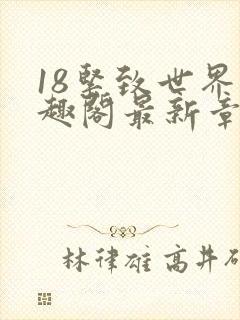 18坚致世界
趣阁最新章
林律雄高井研